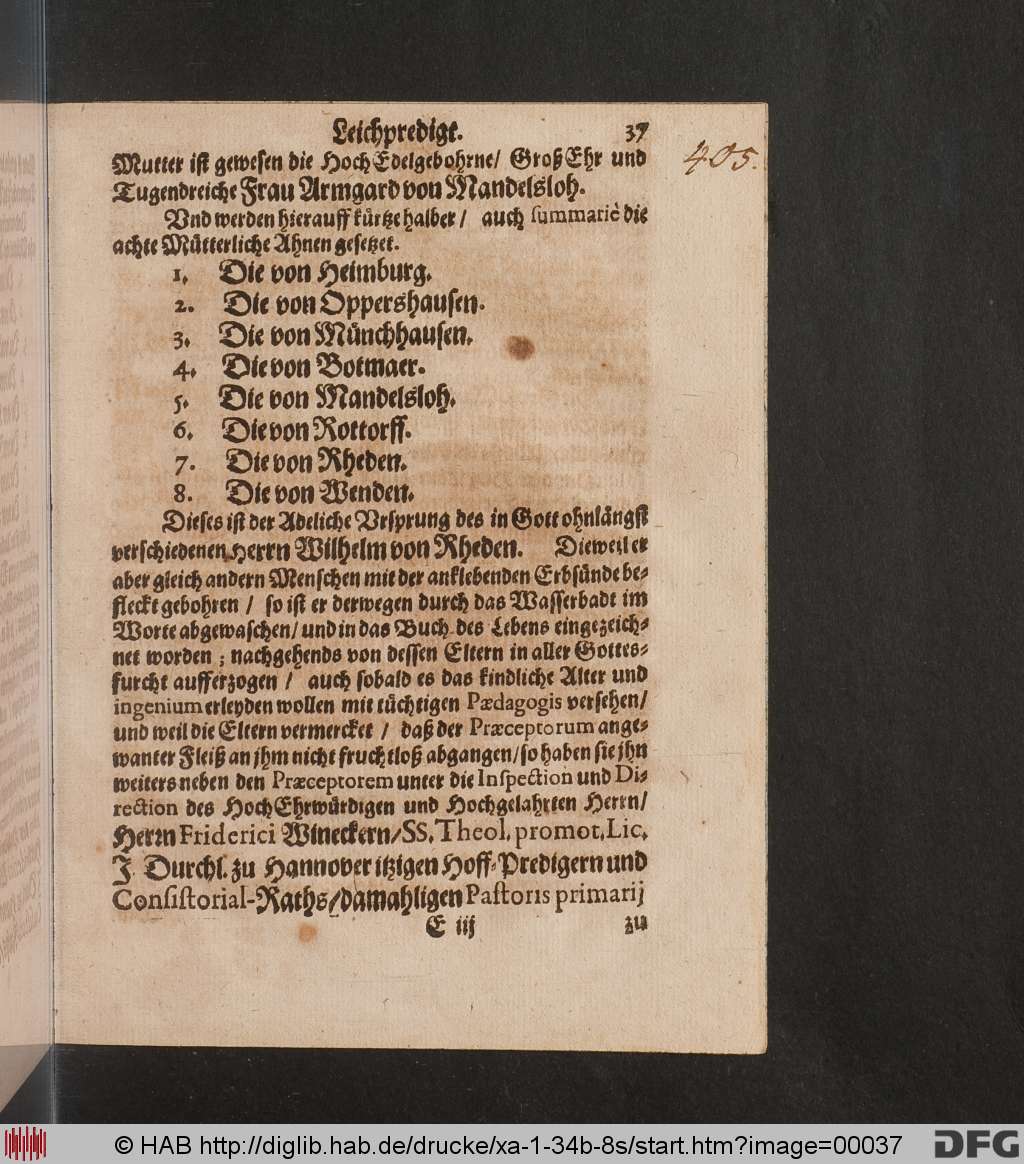 Leichpredigt. 37
405.
Mutter ist gewesen die HochEdelgebohrne/ GroßEhr und
Tugendreiche Frau Armgard von Mandelsloh.
Vnd werden hierauff kürtze halber/ auch summariè die
achte Mütterliche Ahnen gesetzet.
1. Die von Heimburg.
2. Die von Oppershausen.
3. Die von Münchhausen.
4. Die von Botmaer.
5. Die von Mandelsloh.
6. Die von Rottorff.
7. Die von Rheden.
8. Die von Wenden.
Dieses ist der Adeliche Vrsprung des in Gott ohnlängst
verschiedenen Herrn Wilhelm von Rheden. Dieweil er
aber gleich andern Menschen mit der anklebenden Erbsünde be-
fleckt gebohren/ so ist er derwegen durch das Wasserbadt im
Worte abgewaschen/ und in das Buch des Lebens eingezeich-
net worden; nachgehends von dessen Eltern in aller Gottes-
furcht aufferzogen/ auch sobald es das kindliche Alter und
ingenium erleyden wollen mit tüchtigen Pædagogis versehen/
und weil die Eltern vermercket/ daß der Præceptorum ange-
wanter Fleiß an jhm nicht fruchtloß abgangen/ so haben sie jhn
weiters neben den Præceptorem unter die Inspection und Di-
rection des HochEhrwürdigen und Hochgelahrten Herrn/
Herrn Friderici Wineckern/ SS. Theol. promot. Lic.
J. Durchl. zu Hannover itzigen Hoff-Predigern und
Consistorial-Raths/ damahligen Pastoris primarij
E iij zu
© HAB http://diglib.hab.de/drucke/xa-1-34b-8s/start.htm?image=00037
DFG